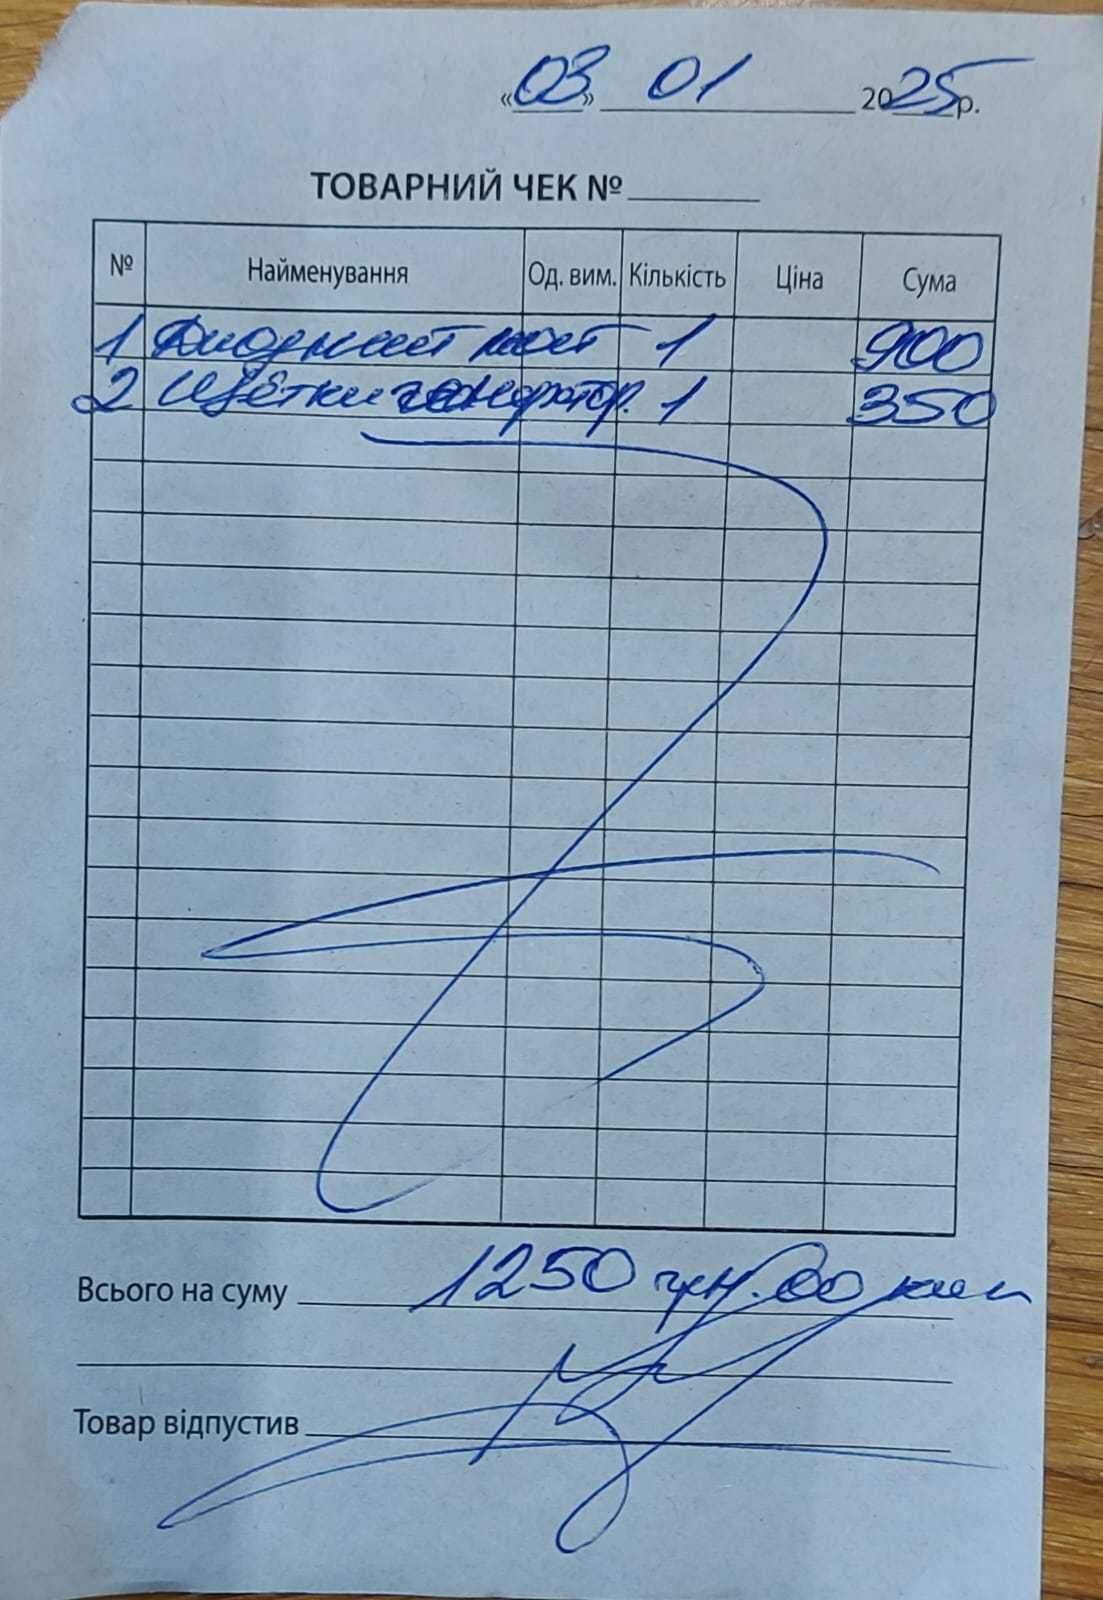 «03» 01 2025р.
ТОВАРНИЙ ЧЕК №
№ Найменування Од. вим. Кількість Ціна Сума
1 Диодний мост 1 900
2 Щётки генератор. 1 350
Всього на суму 1250 грн. 00 коп
Товар відпустив